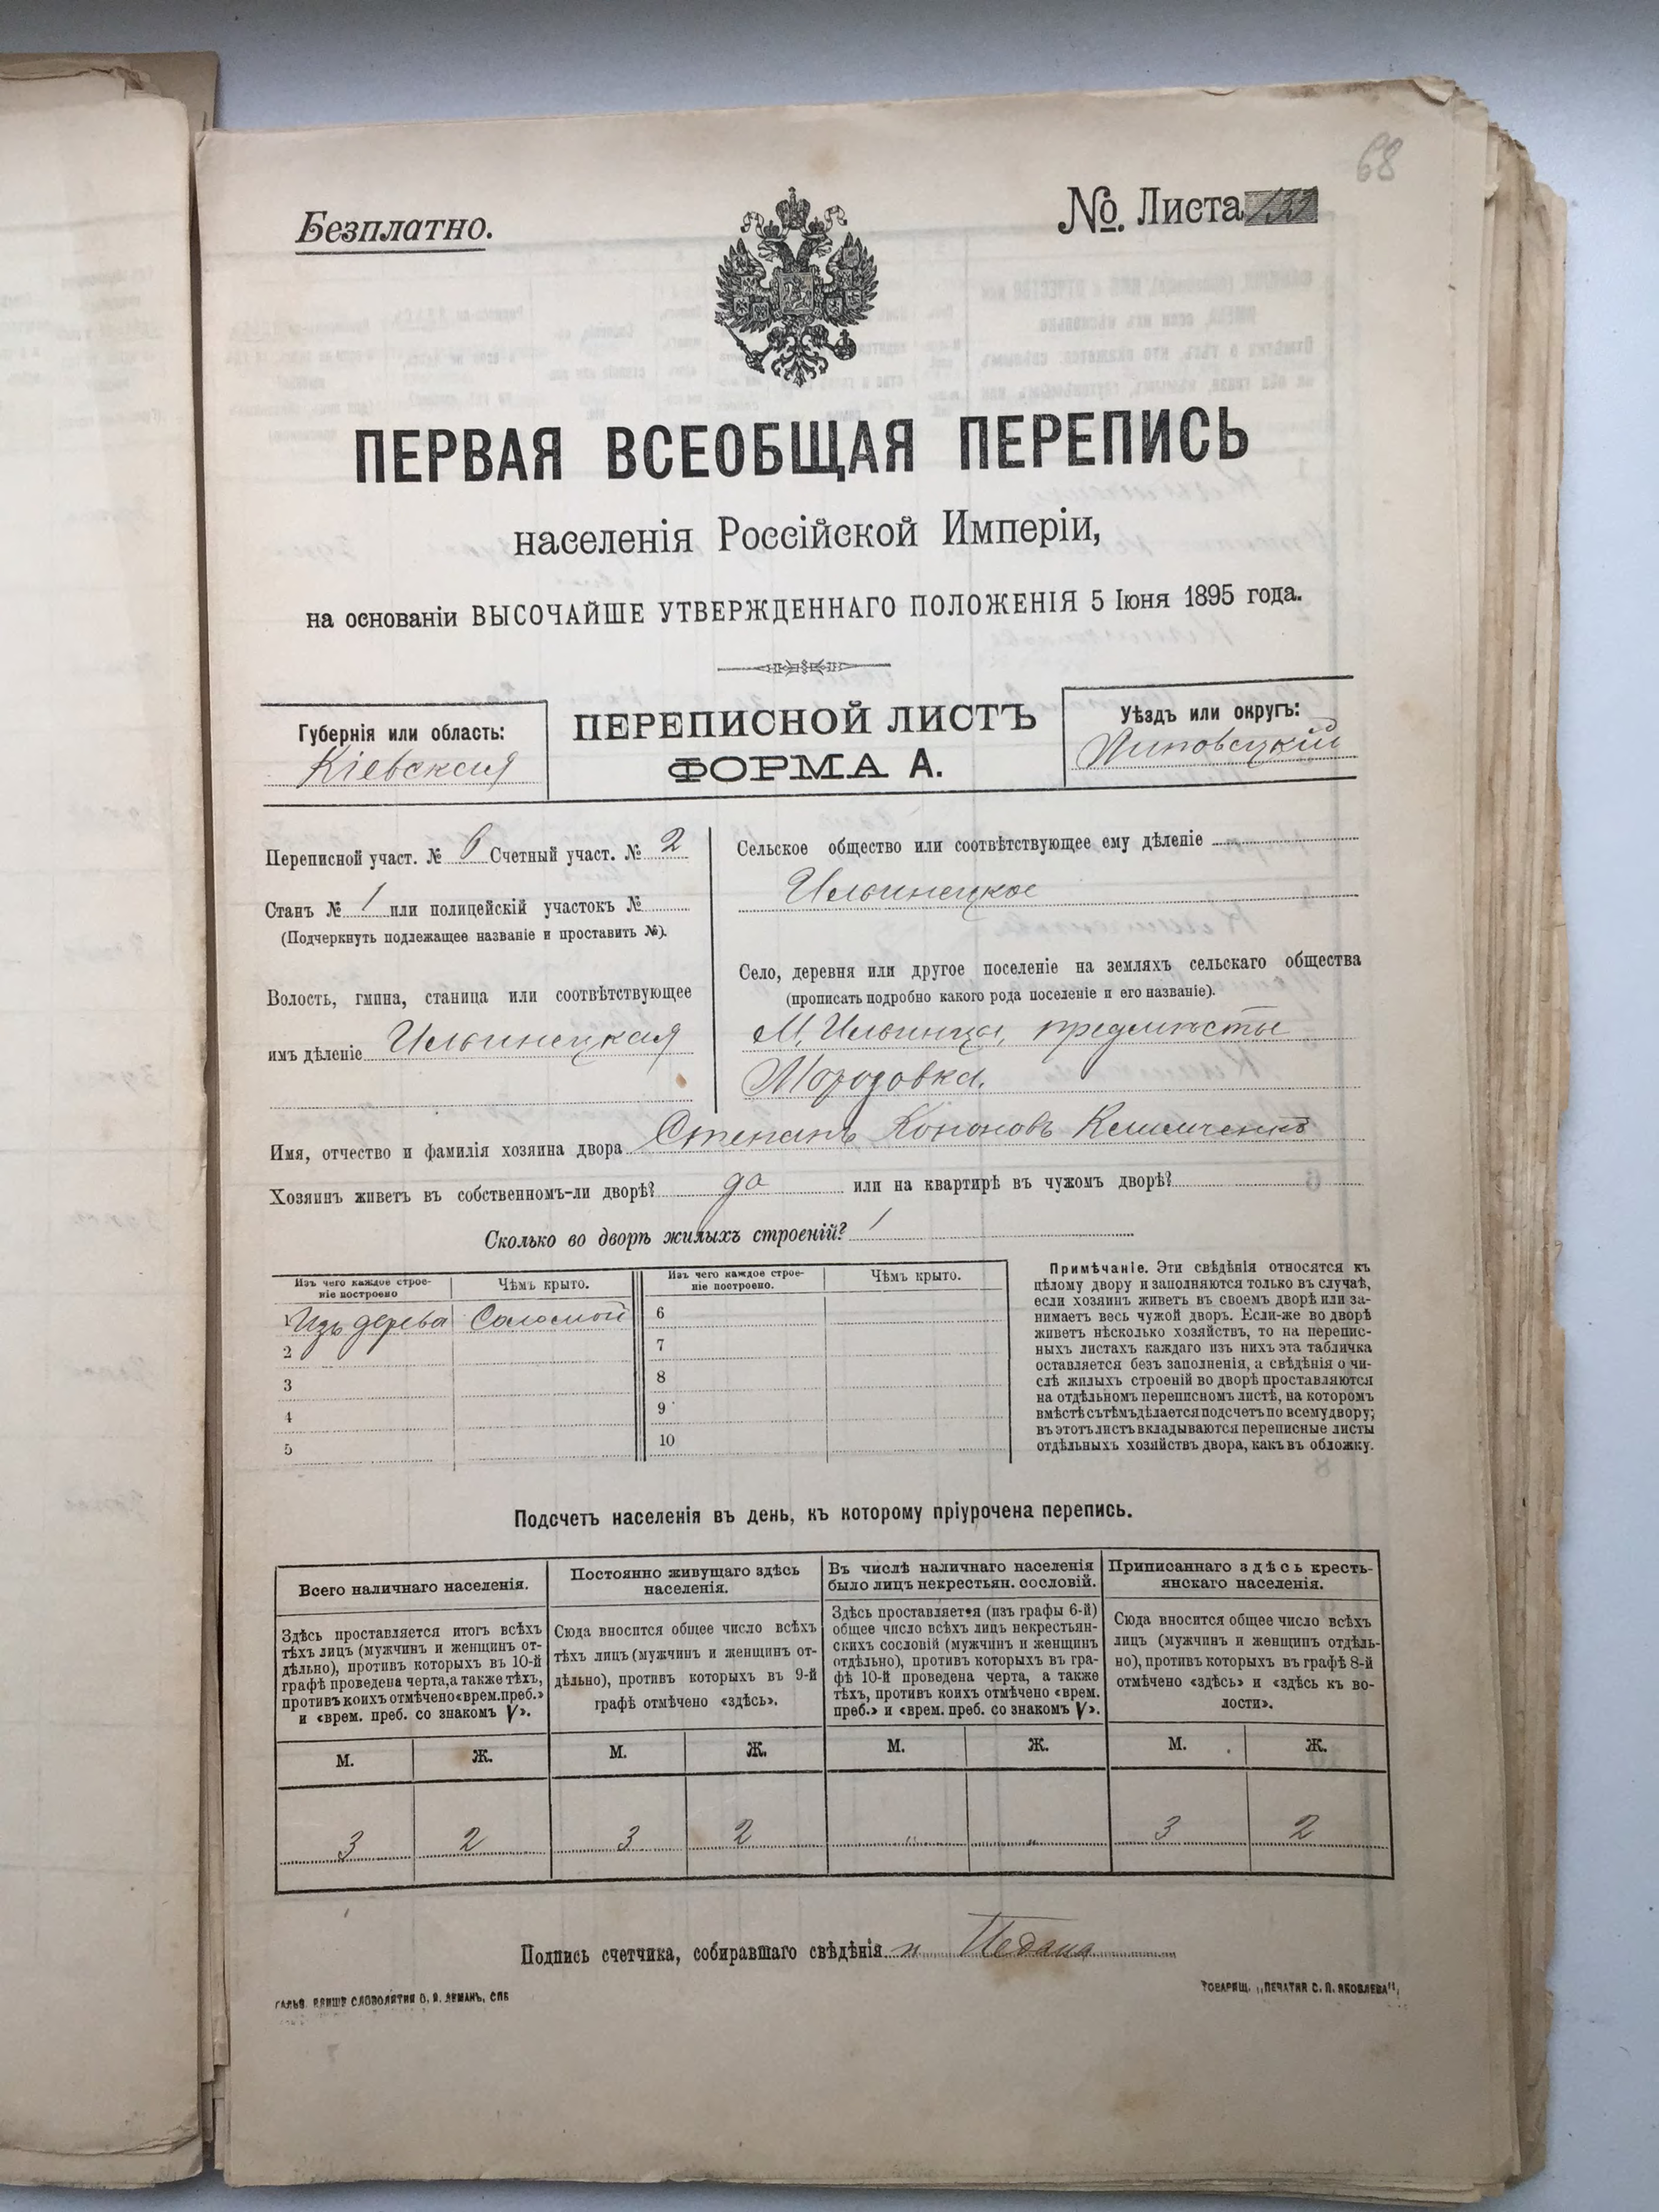 68
Безплатно.
№. Листа
ПЕРВАЯ ВСЕОБЩАЯ ПЕРЕПИСЬ
населенія Россійской Имперіи,
на основаніи ВЫСОЧАЙШЕ УТВЕРЖДЕННАГО ПОЛОЖЕНІЯ 5 Іюня 1895 года.
Губернія или область:
Кіевская
ПЕРЕПИСНОЙ ЛИСТЪ
ФОРМА А.
Уѣздъ или округъ:
Липовецкій
Переписной участ. № 6 Счетный участ. № 2
Станъ № 1 или полицейскій участокъ №
(Подчеркнуть подлежащее названіе и проставить №).
Волость, гмина, станица или соотвѣтствующее
имъ дѣленіе Ильинецкая
Сельское общество или соотвѣтствующее ему дѣленіе
Ильинецкое
Село, деревня или другое поселеніе на земляхъ сельскаго общества
(прописать подробно какого рода поселеніе и его названіе).
М. Ильинцы, предмѣстье
Морозовка.
Имя, отчество и фамилія хозяина двора Степанъ Кононовъ
Хозяинъ живетъ въ собственномъ-ли дворѣ? да или на квартирѣ въ чужомъ дворѣ?
Сколько во дворѣ жилыхъ строеній? 1
Изъ чего каждое строе-
ніе построено
Чѣмъ крыто.
1 Изъ дерева Соломой
2
3
4
5
Изъ чего каждое строе-
ніе построено.
Чѣмъ крыто.
6
7
8
9
10
Примѣчаніе. Эти свѣдѣнія относятся къ
цѣлому двору и заполняются только въ случаѣ,
если хозяинъ живетъ въ своемъ дворѣ или за-
нимаетъ весь чужой дворъ. Если-же во дворѣ
живетъ нѣсколько хозяйствъ, то на перепис-
ныхъ листахъ каждаго изъ нихъ эта табличка
оставляется безъ заполненія, а свѣдѣнія о чи-
слѣ жилыхъ строеній во дворѣ проставляются
на отдѣльномъ переписномъ листѣ, на которомъ
вмѣстѣ съ тѣмъ дѣлается подсчетъ по всему двору;
въ этотъ листъ вкладываются переписные листы
отдѣльныхъ хозяйствъ двора, какъ въ обложку.
Подсчетъ населенія въ день, къ которому пріурочена перепись.
Всего наличнаго населенія.
Здѣсь проставляется итогъ всѣхъ
тѣхъ лицъ (мужчинъ и женщинъ от-
дѣльно), противъ которыхъ въ 10-й
графѣ проведена черта, а также тѣхъ,
противъ коихъ отмѣчено «врем. преб.»
и «врем. преб. со знакомъ V».
М. Ж.
3 2
Постоянно живущаго здѣсь
населенія.
Сюда вносится общее число всѣхъ
тѣхъ лицъ (мужчинъ и женщинъ от-
дѣльно), противъ которыхъ въ 9-й
графѣ отмѣчено «здѣсь».
М. Ж.
3 2
Въ числѣ наличнаго населенія
было лицъ некрестьян. сословій.
Здѣсь проставляется (изъ графы 6-й)
общее число всѣхъ лицъ некрестьян-
скихъ сословій (мужчинъ и женщинъ
отдѣльно), противъ которыхъ въ гра-
фѣ 10-й проведена черта, а также
тѣхъ, противъ коихъ отмѣчено «врем.
преб.» и «врем. преб. со знакомъ V».
М. Ж.
" "
Приписаннаго здѣсь кресть-
янскаго населенія.
Сюда вносится общее число всѣхъ
лицъ (мужчинъ и женщинъ отдѣль-
но), противъ которыхъ въ графѣ 8-й
отмѣчено «здѣсь» и «здѣсь къ во-
лости».
М. Ж.
3 2
Подпись счетчика, собиравшаго свѣдѣнія
ГАЛЬВ. КЛИШЕ СЛОВОЛИТНИ О. И. ЛЕМАНЪ, СПБ
ТОВАРИЩ. „ПЕЧАТНЯ С. П. ЯКОВЛЕВА".